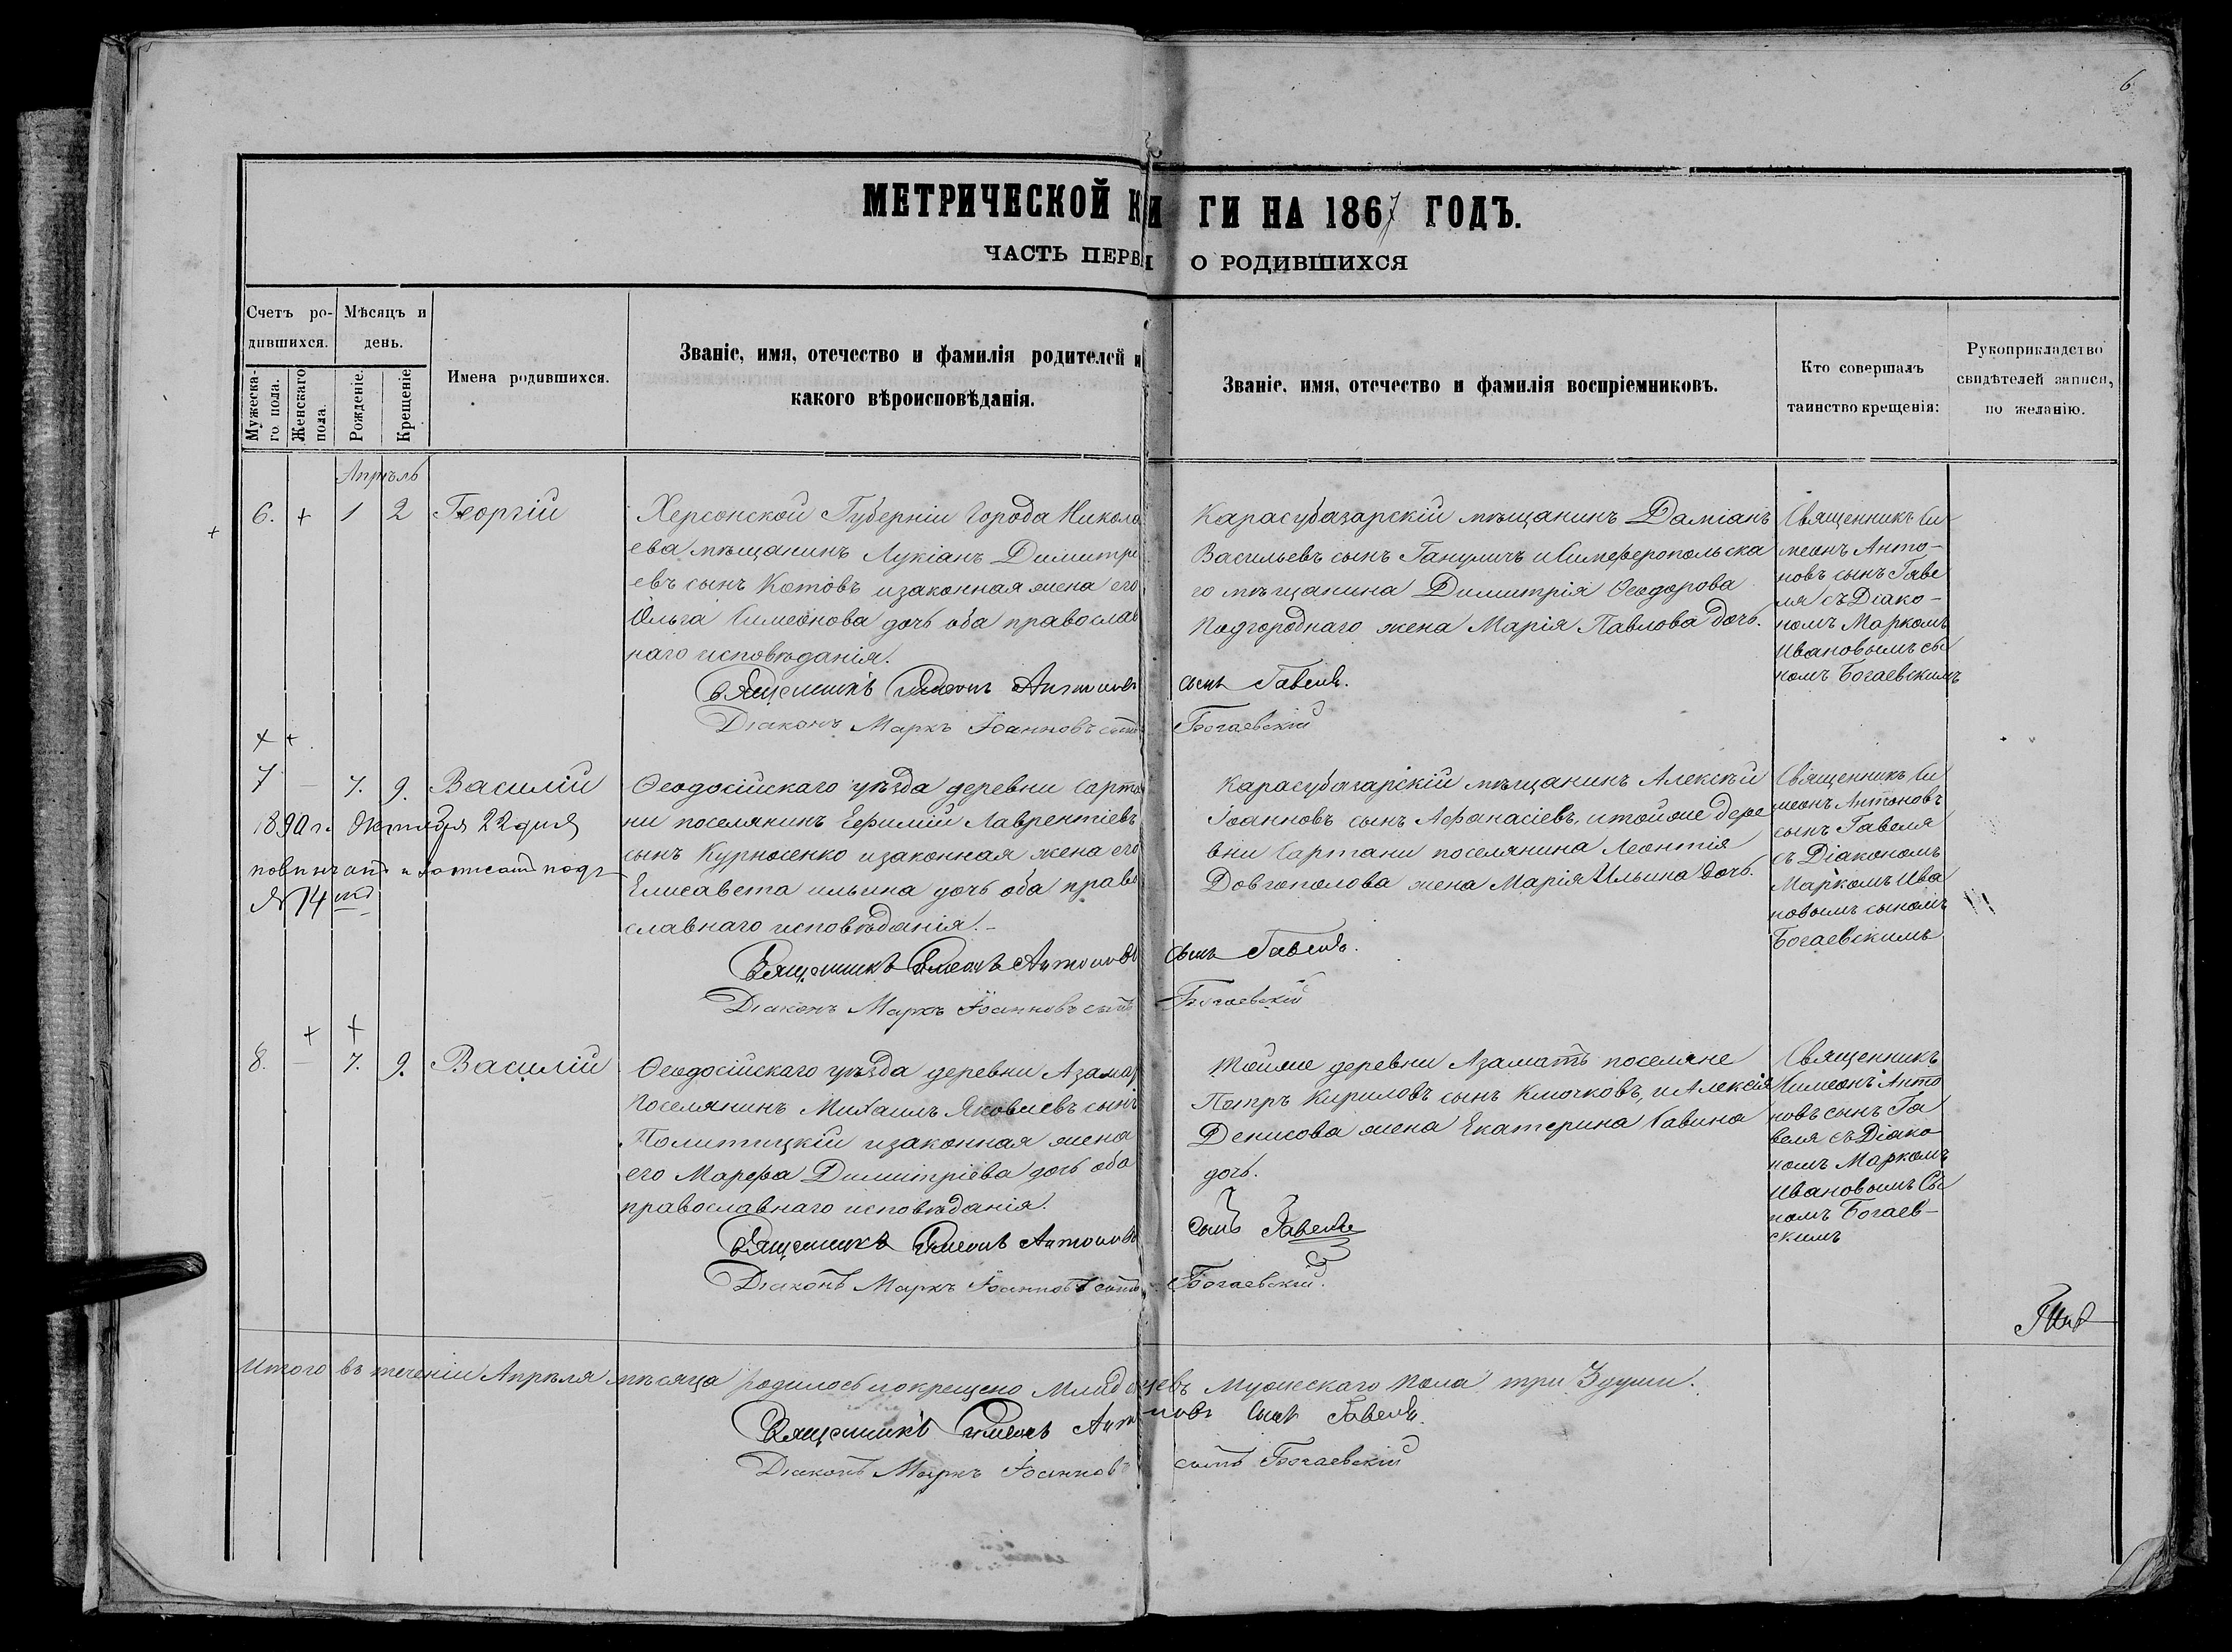 6
МЕТРИЧЕСКОЙ КНИГИ НА 1867 ГОДЪ.
ЧАСТЬ ПЕРВ О РОДИВШИХСЯ
Счетъ ро-
дившихся.
Мужеска-
го пола.
Женскаго
пола.
Мѣсяцъ и
день.
Рожденіе.
Крещеніе.
Имена родившихся.
Званіе, имя, отечество и фамилія родителей и
какого вѣроисповѣданія.
Званіе, имя, отечество и фамилія воспріемниковъ.
Кто совершалъ
таинство крещенія:
Рукоприкладство
свидѣтелей записи,
по желанію.
Апрѣль
6. + 1 2 Георгій
Херсонской Губерніи Города Никола
ева мѣщанинъ Лукіанъ Димитрі
евъ сынъ Котовъ изаконная жена его
Ольга Симеонова дочь оба православ
наго исповѣданія.
Карасубазарскій мѣщанинъ Даміанъ
Васильевъ сынъ Гануличъ иСимферопольска
го мѣщанина Димитрія Ѳеодорова
Подгороднаго жена Марія Павлова дочь.
Священникъ Си
меонъ Анто-
новъ сынъ Гаве
ля съ Діако-
номъ Маркомъ
Ивановымъ сы
номъ Богаевскимъ
Священникъ Симеонъ Антоновъ сынъ Гавель.
Діаконъ Маркъ Іоанновъ сынъ Богаевскій
7 — 7. 9. Василій
1890 г. Октября 22 дня
повѣнчанъ и записанъ подъ
№ 14
Ѳеодосійскаго уѣзда деревни Сарта
ни поселянинъ Ефимій Лаврентіевъ
сынъ Курносенко изаконная жена его
Елисавета ильина дочь оба право
славнаго исповѣданія.-
Карасубазарскій мѣщанинъ Алексѣй
Іоанновъ сынъ Афанасіевъ, итойже дере
вни Сартани поселянина Леонтія
Довгополова жена Марія Ильина дочь.
Священникъ Си
меонъ Антоновъ
сынъ Гавеля
съ Діакономъ
Маркомъ Ива
новымъ сыномъ
Богаевскимъ
Священникъ Симеонъ Антоновъ сынъ Гавель.
Діаконъ Маркъ Іоанновъ сынъ Богаевскій
8. — 7. 9. Василій
Ѳеодосійскаго уѣзда деревни Азама
Поселянинъ Михаилъ Яковлевъ сынъ
Политицкій изаконная жена
его Марѳа Димитріева дочь оба
православнаго исповѣданія.
Тойже деревни Азаматъ поселяне
Петръ Кириловъ сынъ Клочковъ, иАлексія
Денисова жена Екатерина Савина
дочь.
Священникъ
Симеонъ Анто
новъ сынъ Га
веля съ Діако
номъ Маркомъ
Ивановымъ Сы
номъ Богаев-
скимъ
Священникъ Симеонъ Антоновъ сынъ Гавель
Діаконъ Маркъ Іоанновъ сынъ Богаевскій.
Итого въ теченіи Апрѣля мѣсяца родилось и окрещено Младенцевъ Мужескаго пола три 3 души.
Священникъ Симеонъ Антоновъ сынъ Гавель.
Діаконъ Маркъ Іоанновъ сынъ Богаевскій